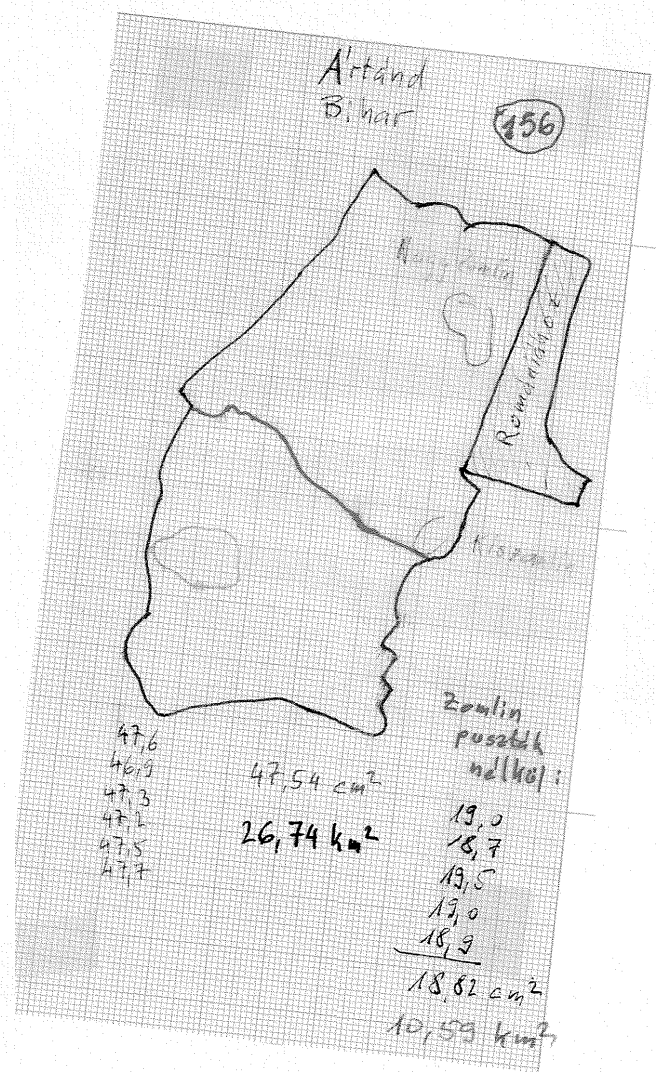 Ártánd
Bihar
156
Nagyzomlin
Romániához
Kiszomlin
47,6
46,9
47,3
47,2
47,5
47,7
47,54 cm²
26,74 km²
Zomlin
puszták
nélkül:
19,0
18,7
19,5
19,0
18,9
18,82 cm²
10,59 km²